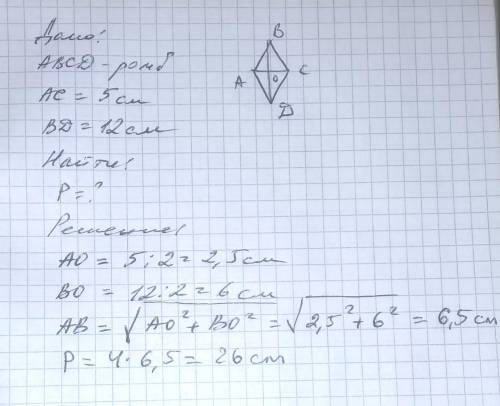 Дано:
ABCD - ромб
AC = 5 см
BD = 12 см
Найти:
P = ?
Решение:
AO = 5 : 2 = 2,5 см
BO = 12 : 2 = 6 см
AB = √AO² + BO² = √2,5² + 6² = 6,5 см
P = 4 · 6,5 = 26 cm
B
A O C
D